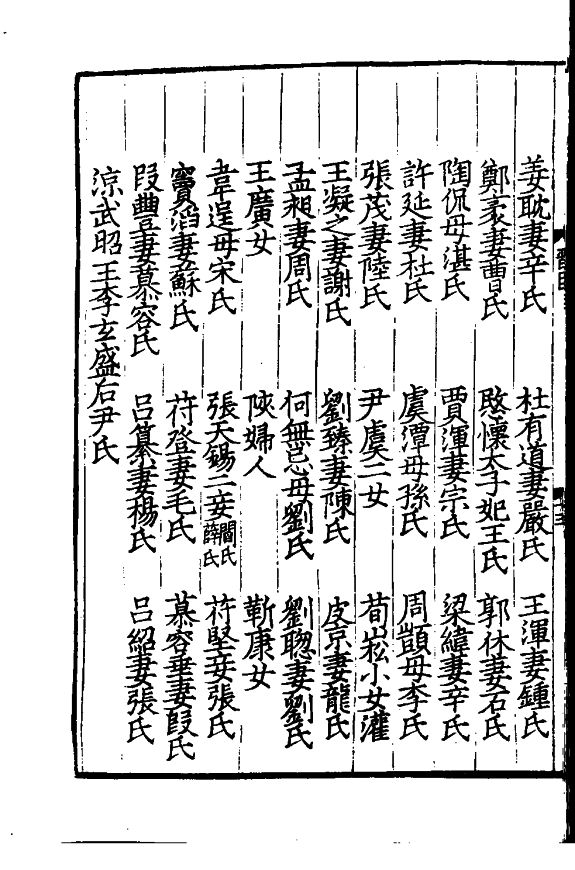 姜耽妻辛氏 杜有道妻嚴氏 王渾妻鍾氏
鄭袤妻曹氏 愍懷太子妃王氏 郭休妻石氏
陶侃母湛氏 賈渾妻宗氏 梁緯妻辛氏
許延妻杜氏 虞潭母孫氏 周顗母李氏
張茂妻陸氏 尹虞二女 荀崧小女灌
王凝之妻謝氏 劉臻妻陳氏 皮京妻龍氏
孟昶妻周氏 何無忌母劉氏 劉聦妻劉氏
王廣女 陜婦人 靳康女
韋逞母宋氏 張天錫二妾閻氏薛氏 苻堅妾張氏
竇滔妻蘇氏 苻登妻毛氏 慕容垂妻段氏
段豐妻慕容氏 呂纂妻楊氏 呂紹妻張氏
涼武昭王李玄盛后尹氏